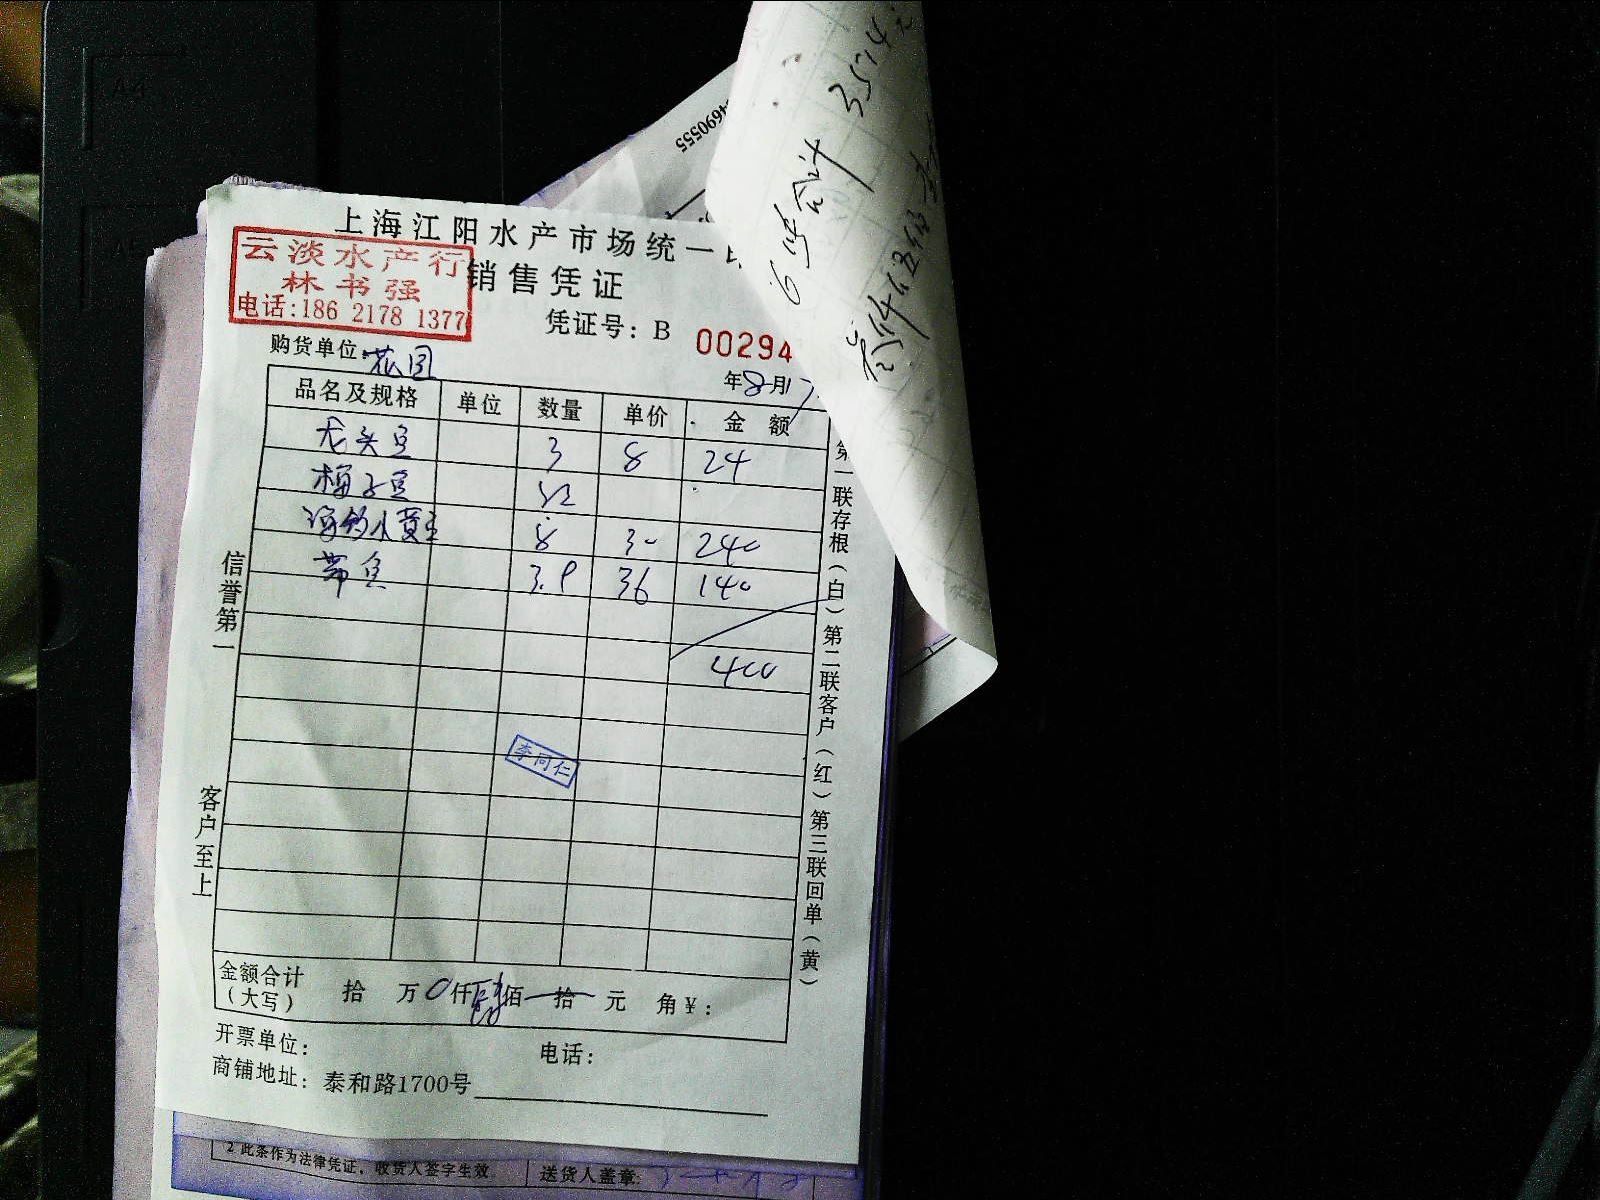 上海江阳水产市场统一
云淡水产行
林书强
电话:186 2178 1377
销售凭证
凭证号: B 00294
购货单位: 花园
年8月17
品名及规格 单位 数量 单价 金额
龙头鱼 3 8 24
梅子鱼
海钓小黄鱼 8 30 240
带鱼 3.9 36 140
400
李同仁
信誉第一
客户至上
第一联存根(白)第二联客户(红)第三联回单(黄)
金额合计(大写) 拾 万 0 仟 肆 佰 拾 元 角 ¥:
开票单位: 电话:
商铺地址: 泰和路1700号
2 此条作为法律凭证，收货人签字生效
送货人盖章:
4690555
6张合计 3574元